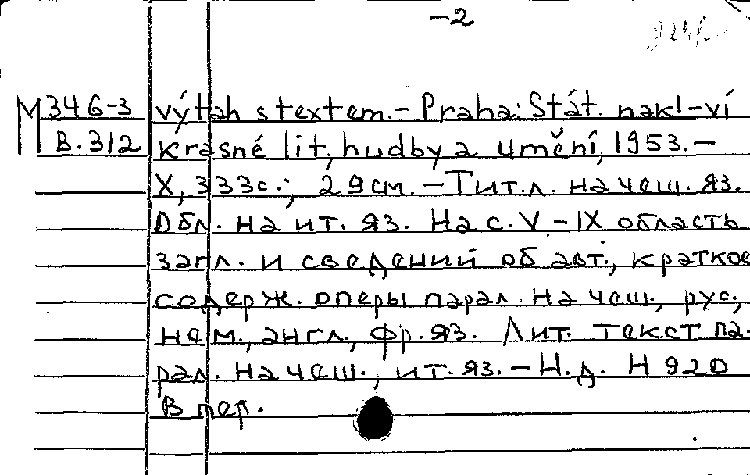 -2
М346-3
В.312
výtah s textem.- Praha: Stát. nakl-ví
krásné lit., hudby a umění, 1953.-
X, 333с.; 29см.- Тит.л. на чеш. яз.
Обл. на ит. яз. На с. V-IX область
загл. и сведений об авт., краткое
содерж. оперы парал. на чеш., рус.,
нем., англ., фр. яз. Лит. текст па-
рал. на чеш., ит. яз.- Н.д. Н 920
В пер.